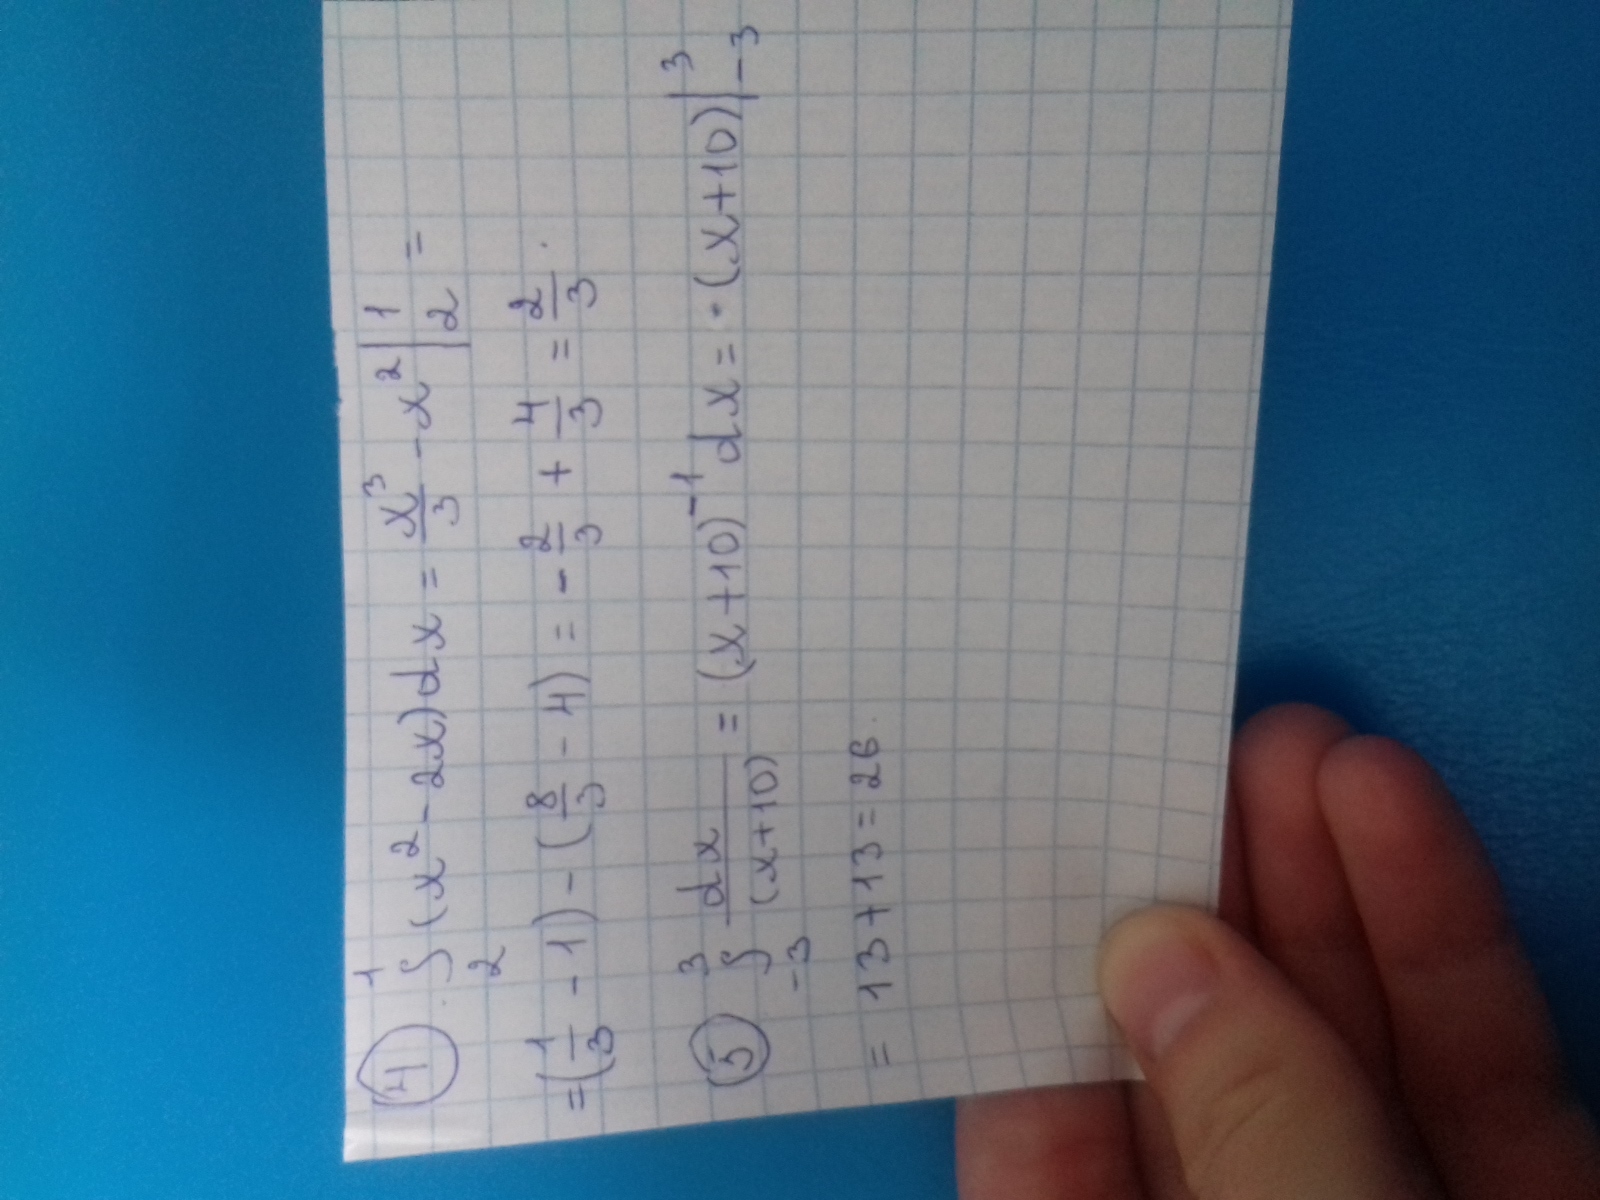 4 ∫₂¹ (x² - 2x)dx = x³/3 - x² |₂¹ =
= (1/3 - 1) - (8/3 - 4) = - 2/3 + 4/3 = 2/3.
5 ∫₋₃³ dx/(x+10) = (x+10)⁻¹ dx = · (x+10)|₋₃³
= 13+13=26.